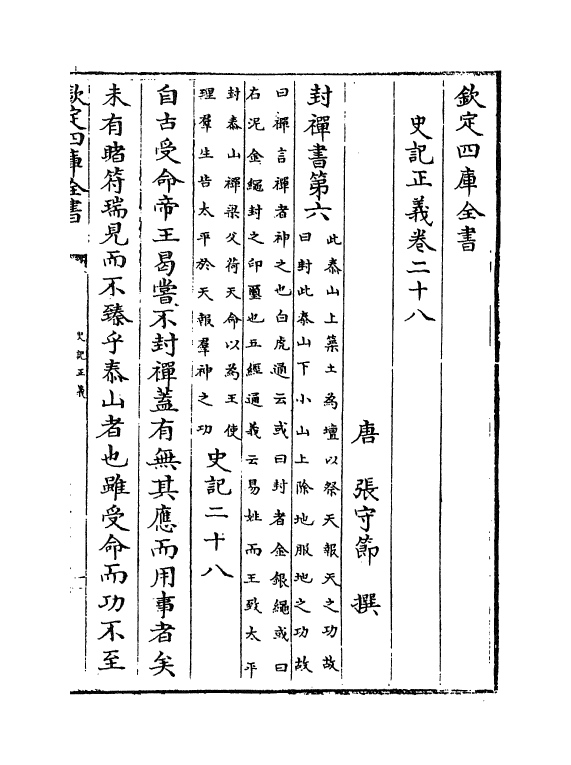 欽定四庫全書
史記正義卷二十八
唐 張守節 撰
封禪書第六
此泰山上築土為壇以祭天報天之功故
曰封此泰山下小山上除地服地之功故
曰禪言禪者神之也白虎通云或曰封者金銀繩或曰
石泥金繩封之印璽也五經通義云易姓而王致太平
封泰山禪梁父荷天命以為王使
理羣生告太平於天報羣神之功
史記二十八
自古受命帝王曷嘗不封禪蓋有無其應而用事者矣
未有睹符瑞見而不臻乎泰山者也雖受命而功不至
欽定四庫全書
史記正義